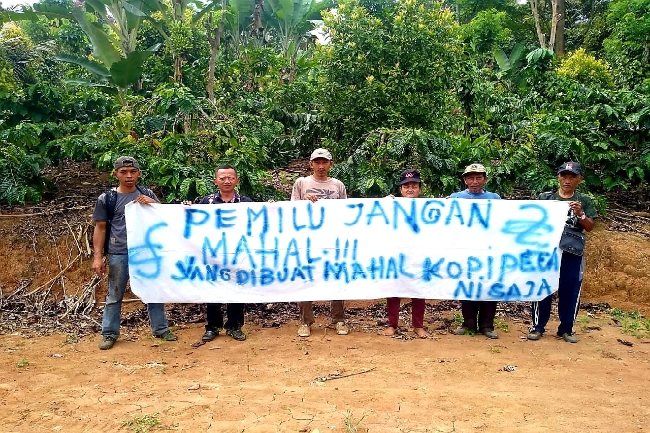 PEMILU JANGAN
MAHAL.!!!
YANG DIBUAT MAHAL KOPI PETA
NI SAJA